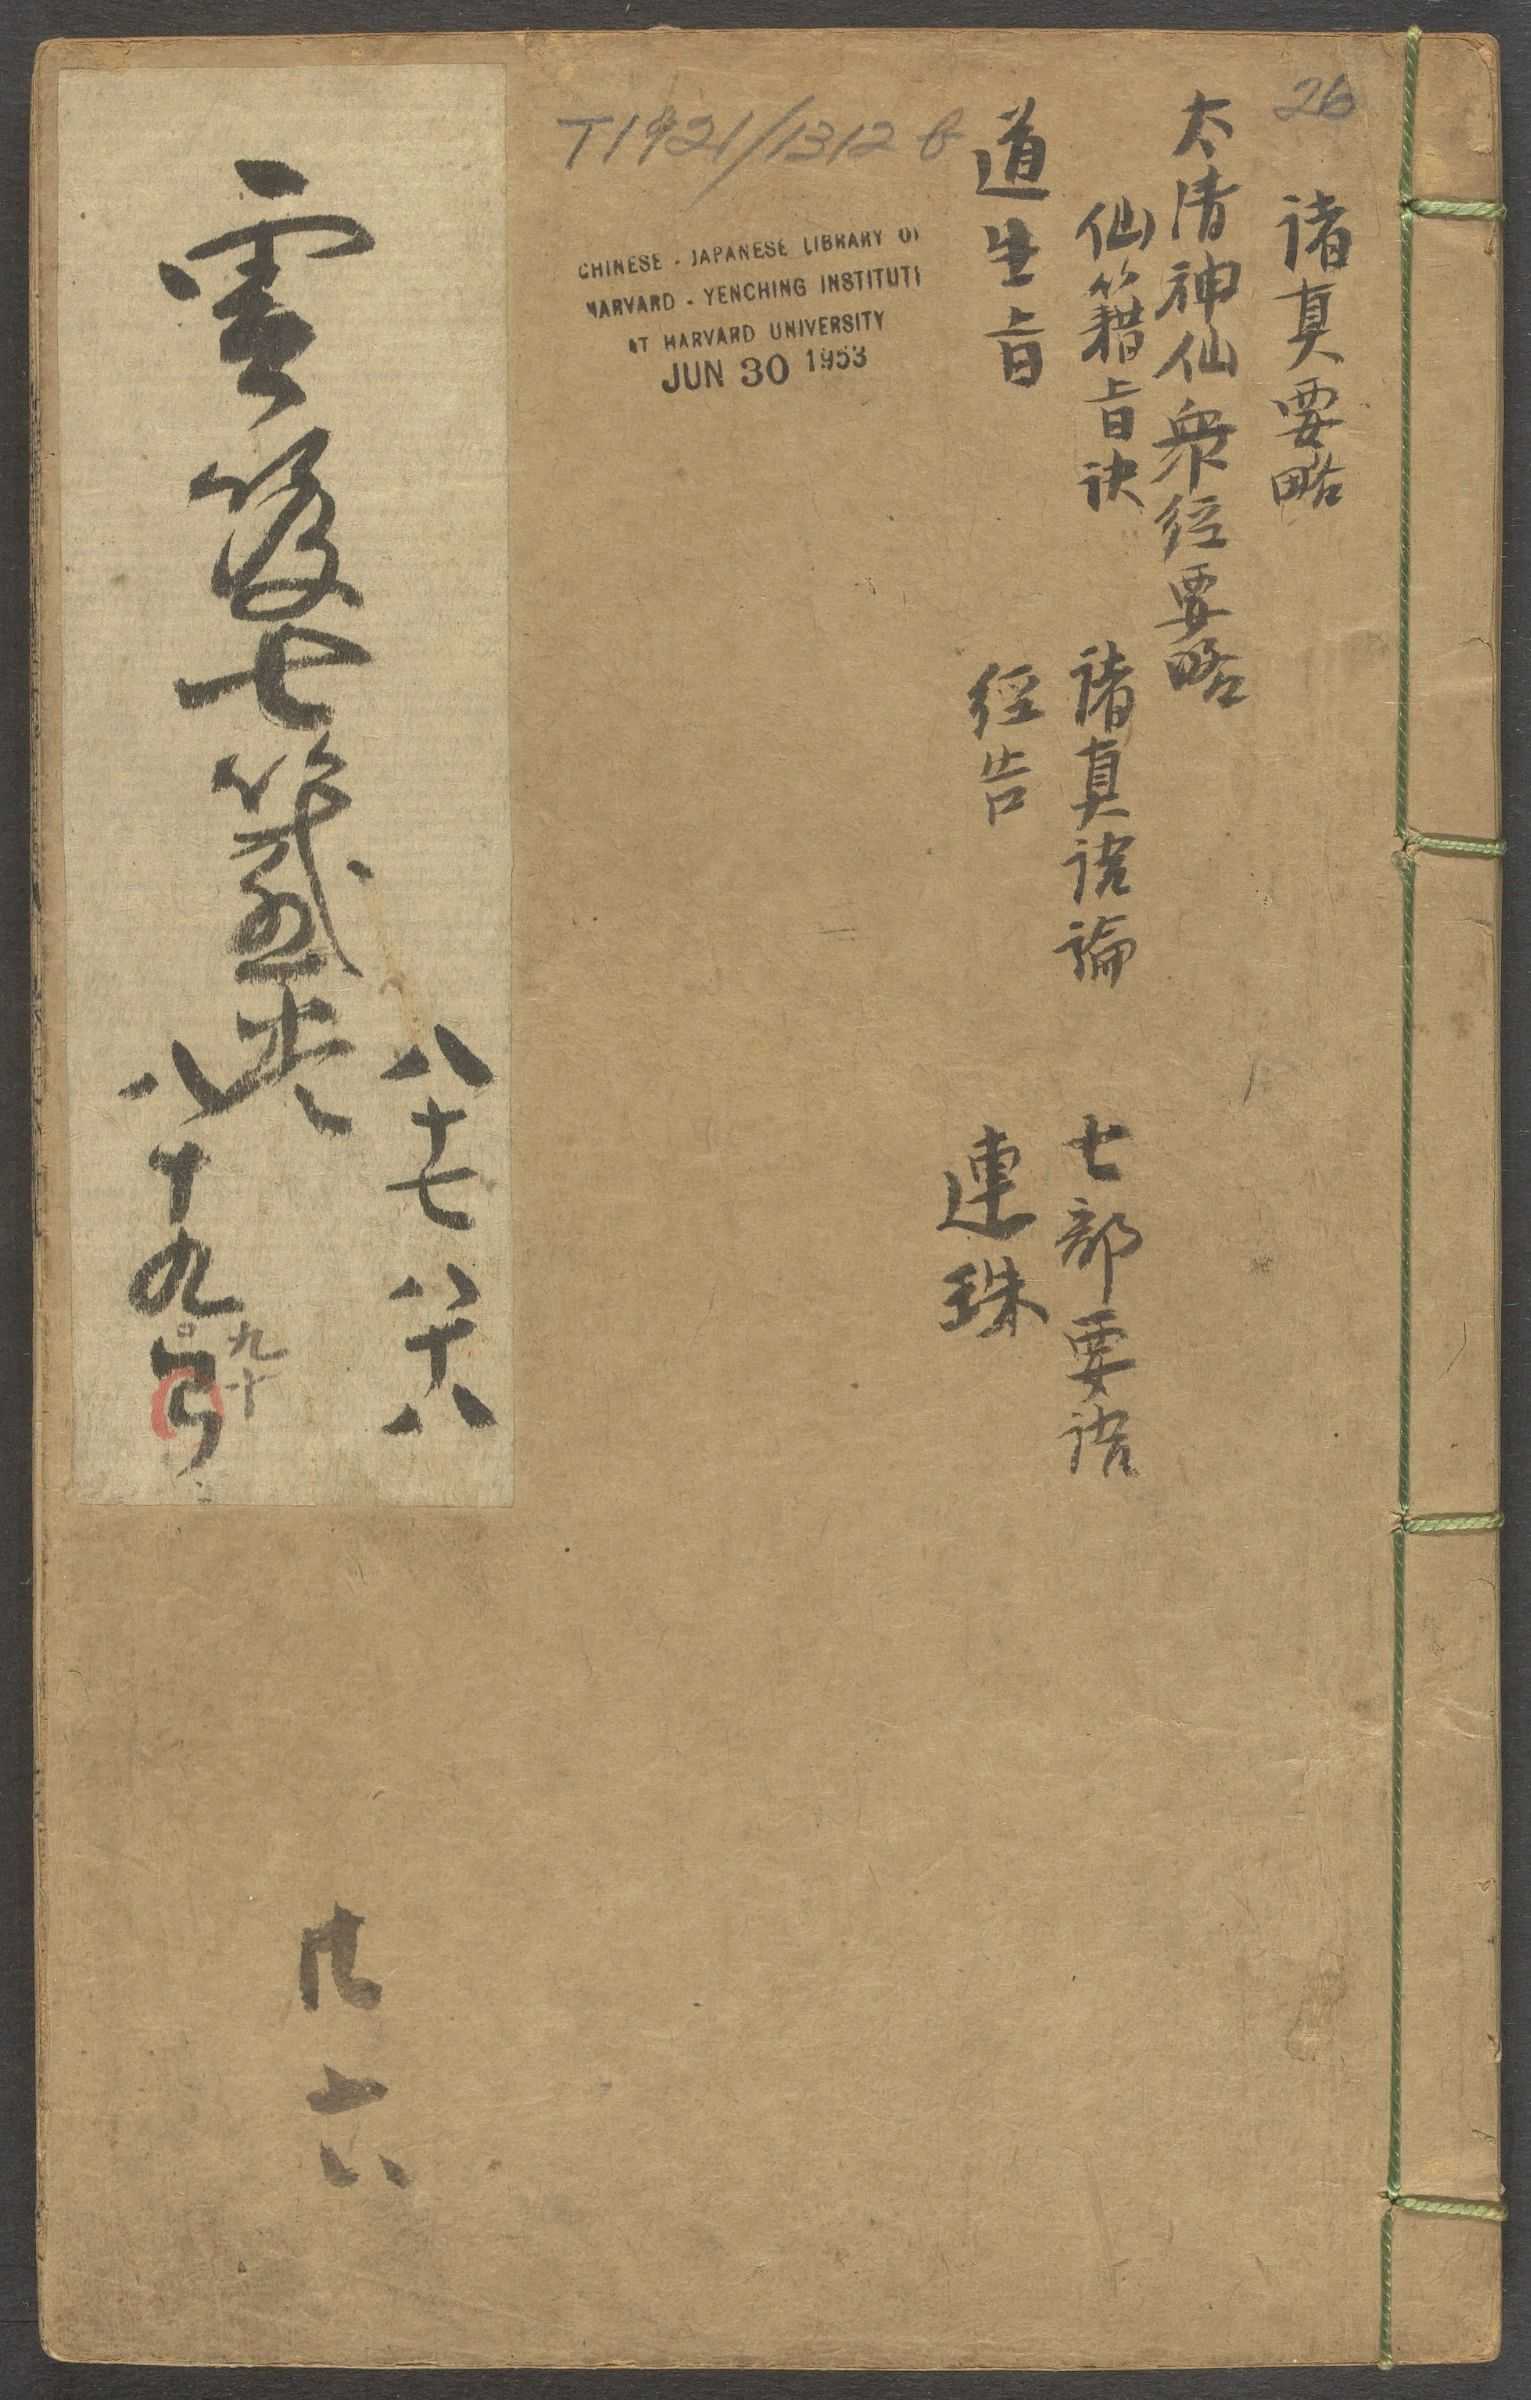 26
諸真要略
太清神仙衆經要略
仙籍旨訣 諸真語論 七部要語
道生旨 經告 連珠
T1921/1312 b
CHINESE - JAPANESE LIBRARY OF
HARVARD - YENCHING INSTITUTE
AT HARVARD UNIVERSITY
JUN 30 1953
雲笈七籤
八十七 八十八
八十九
九十
六